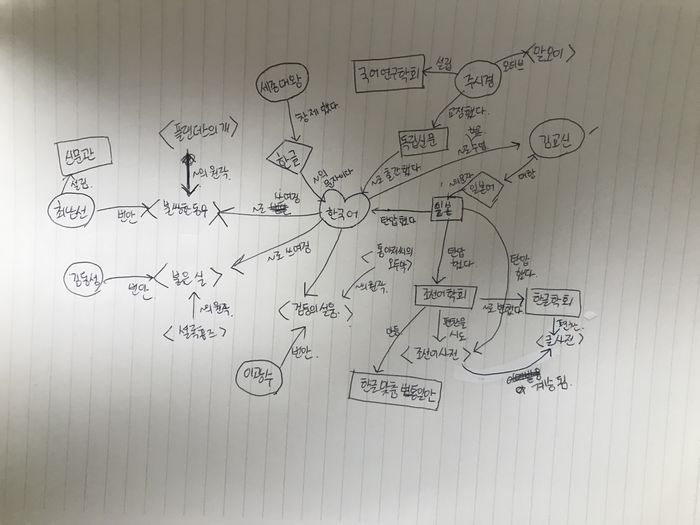 국어연구학회
설립
주시경
모티브
<말모이>
세종대왕
창제했다.
교정했다.
<플랜더스의 개>
독립신문
김교신
신문관
한글
~의 원작.
~의
문자이다
~로 출간했다
~로 수업
설립.
~의 문자
일본어
최남선
번안
<불쌍한 동무>
~로 쓰여짐
한국어
탄압했다
일본
탄압
했다.
탄압
했다.
~로 쓰여짐
<톰 아저씨의
오두막>
김동성
번안.
<붉은 실>
~의 원작.
<검둥의 설움>
조선어학회
~로 변했다.
한글학회
~의 원작.
<셜록홈즈>
번안.
만듦
편찬을
시도
편찬.
<조선어사전>
<큰사전>
이광수
계승 됨.
한글 맞춤법 통일안